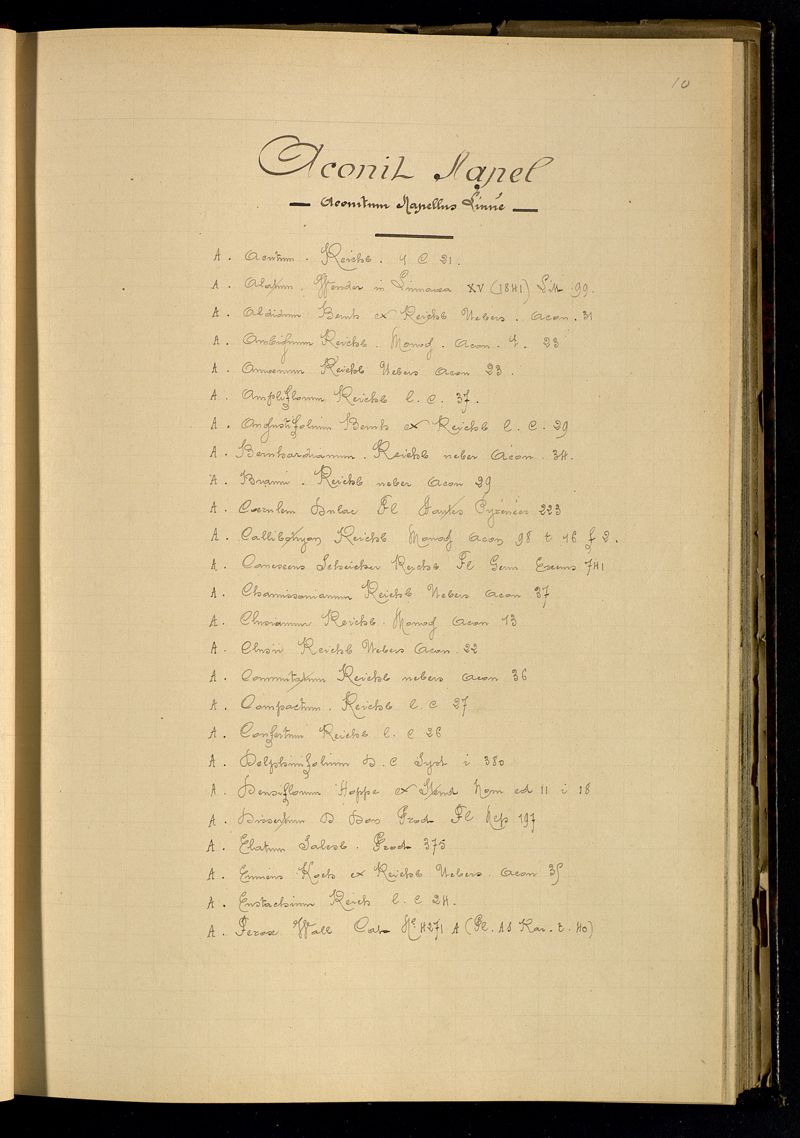 10
Aconit Napel
— Aconitum Napellus Linné —
A. Acutum. Reichb. l C 21.
A. Alatum. Wender in Linnaea XV (1841) Litt 99.
A. Albidum Bernh ex Reichb Uebers. Acon. 31
A. Ambiguum Reichb. Monog. Acon. t. 23
A. Amoenum Reichb Uebers Acon 23.
A. Ampliflorum Reichb l. C. 37.
A. Angustifolium Bernh ex Reichb l. C. 29
A. Bernhardianum. Reichb ueber Acon. 34.
A. Braunii. Reichb ueber Acon 29
A. Coerulem Dulac Fl Hautes Pyrénées 223
A. Callibotryon Reichb Monog Acon 98 t 16 f 2.
A. Canescens Schleicher Reichb Fl Germ Excurs 741
A. Chamissonianum Reichb Uebers Acon 37
A. Clusianum Reichb. Monog Acon 13
A. Clusii Reichb Uebers Acon. 22
A. Commutatum Reichb uebers Acon 36
A. Compactum. Reichb l. C 27
A. Confertum Reichb l. C 26
A. Delphinifolium D. C Syst i 380
A. Densiflorum Hoppe ex Steud Nom ed 11 i 18
A. Dissectum D Don Prod Fl Nep 197
A. Elatum Salisb. Prod 375
A. Eminens Koch ex Reichb Uebers. Acon 35
A. Eustachium Reich l. C 24.
A. Ferox Wall Cat Nº 4271 A (Pl. As Rar. t. 40)